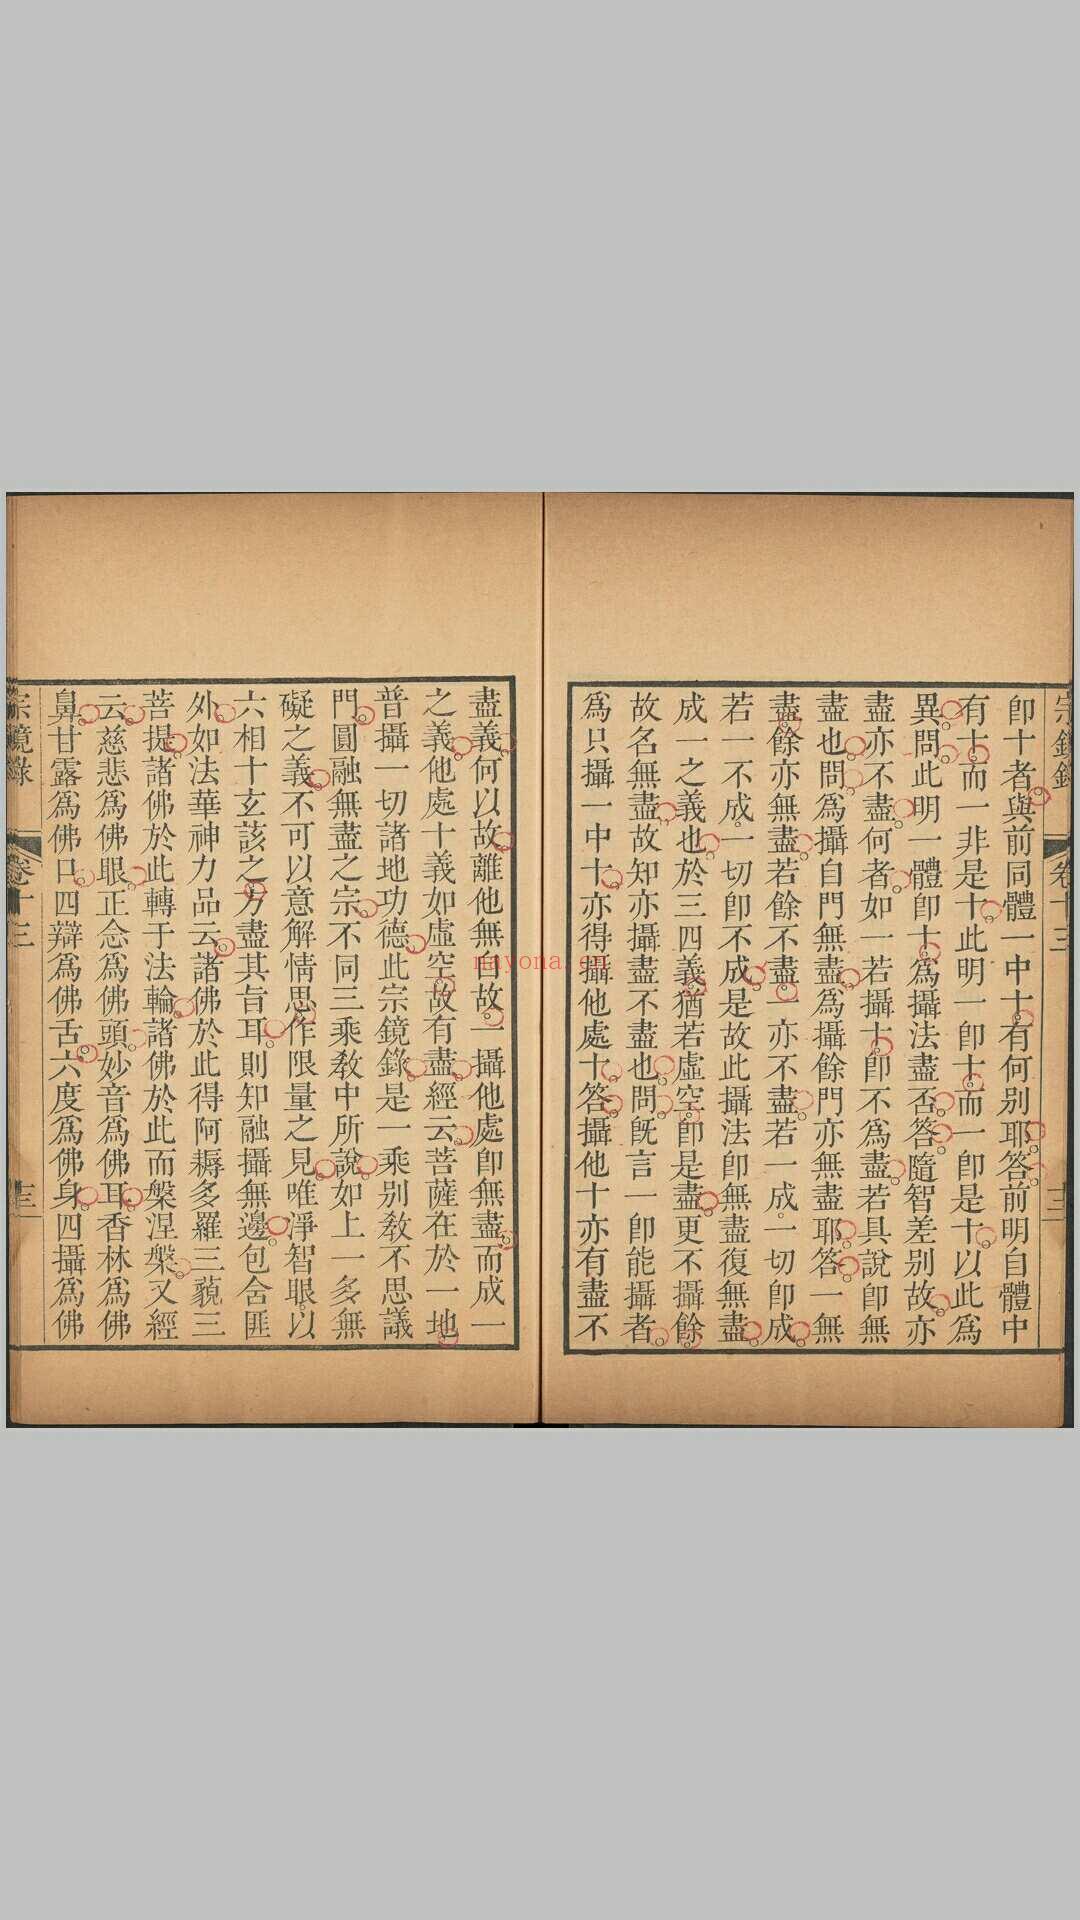 宗鏡錄 卷十三 十三
卽十者與前同體一中十有何別耶答前明自體中
有十而一非是十此明一卽十而一卽是十以此爲
異問此明一體卽十爲攝法盡否答隨智差別故亦
盡亦不盡何者如一若攝十卽不爲盡若具說卽無
盡也問爲攝自門無盡爲攝餘門亦無盡耶答一無
盡餘亦無盡若餘不盡一亦不盡若一成一切卽成
若一不成一切卽不成是故此攝法卽無盡復無盡
成一之義也於三四義猶若虛空卽是盡更不攝餘
故名無盡故知亦攝盡不盡也問旣言一卽能攝者
爲只攝一中十亦得攝他處十答攝他十亦有盡不
盡義何以故離他無自故一攝他處卽無盡而成一
之義他處十義如虛空故有盡經云菩薩在於一地
普攝一切諸地功德此宗鏡錄是一乘別教不思議
門圓融無盡之宗不同三乘教中所說如上一多無
礙之義不可以意解情思作限量之見唯淨智眼以
六相十玄該之方盡其旨耳則知融攝無邊包含匪
外如法華神力品云諸佛於此得阿耨多羅三藐三
菩提諸佛於此轉于法輪諸佛於此而槃涅槃又經
云慈悲爲佛眼正念爲佛頭妙音爲佛耳香林爲佛
鼻甘露爲佛口四辯爲佛舌六度爲佛身四攝爲佛
宗鏡錄 卷十三 十三
nayona.cn